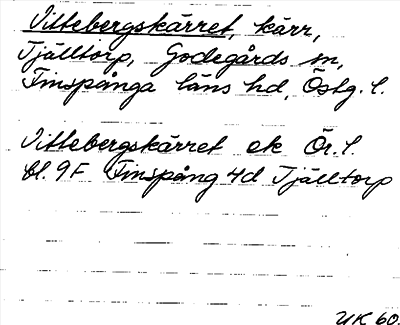 Vittebergskärret, kärr,
Tjälltorp, Godegårds sn,
Finspånga läns hd, Östg. l.
Vittebergskärret ek Ör. l.
bl. 9F Finspång 4d Tjälltorp
UK 60.